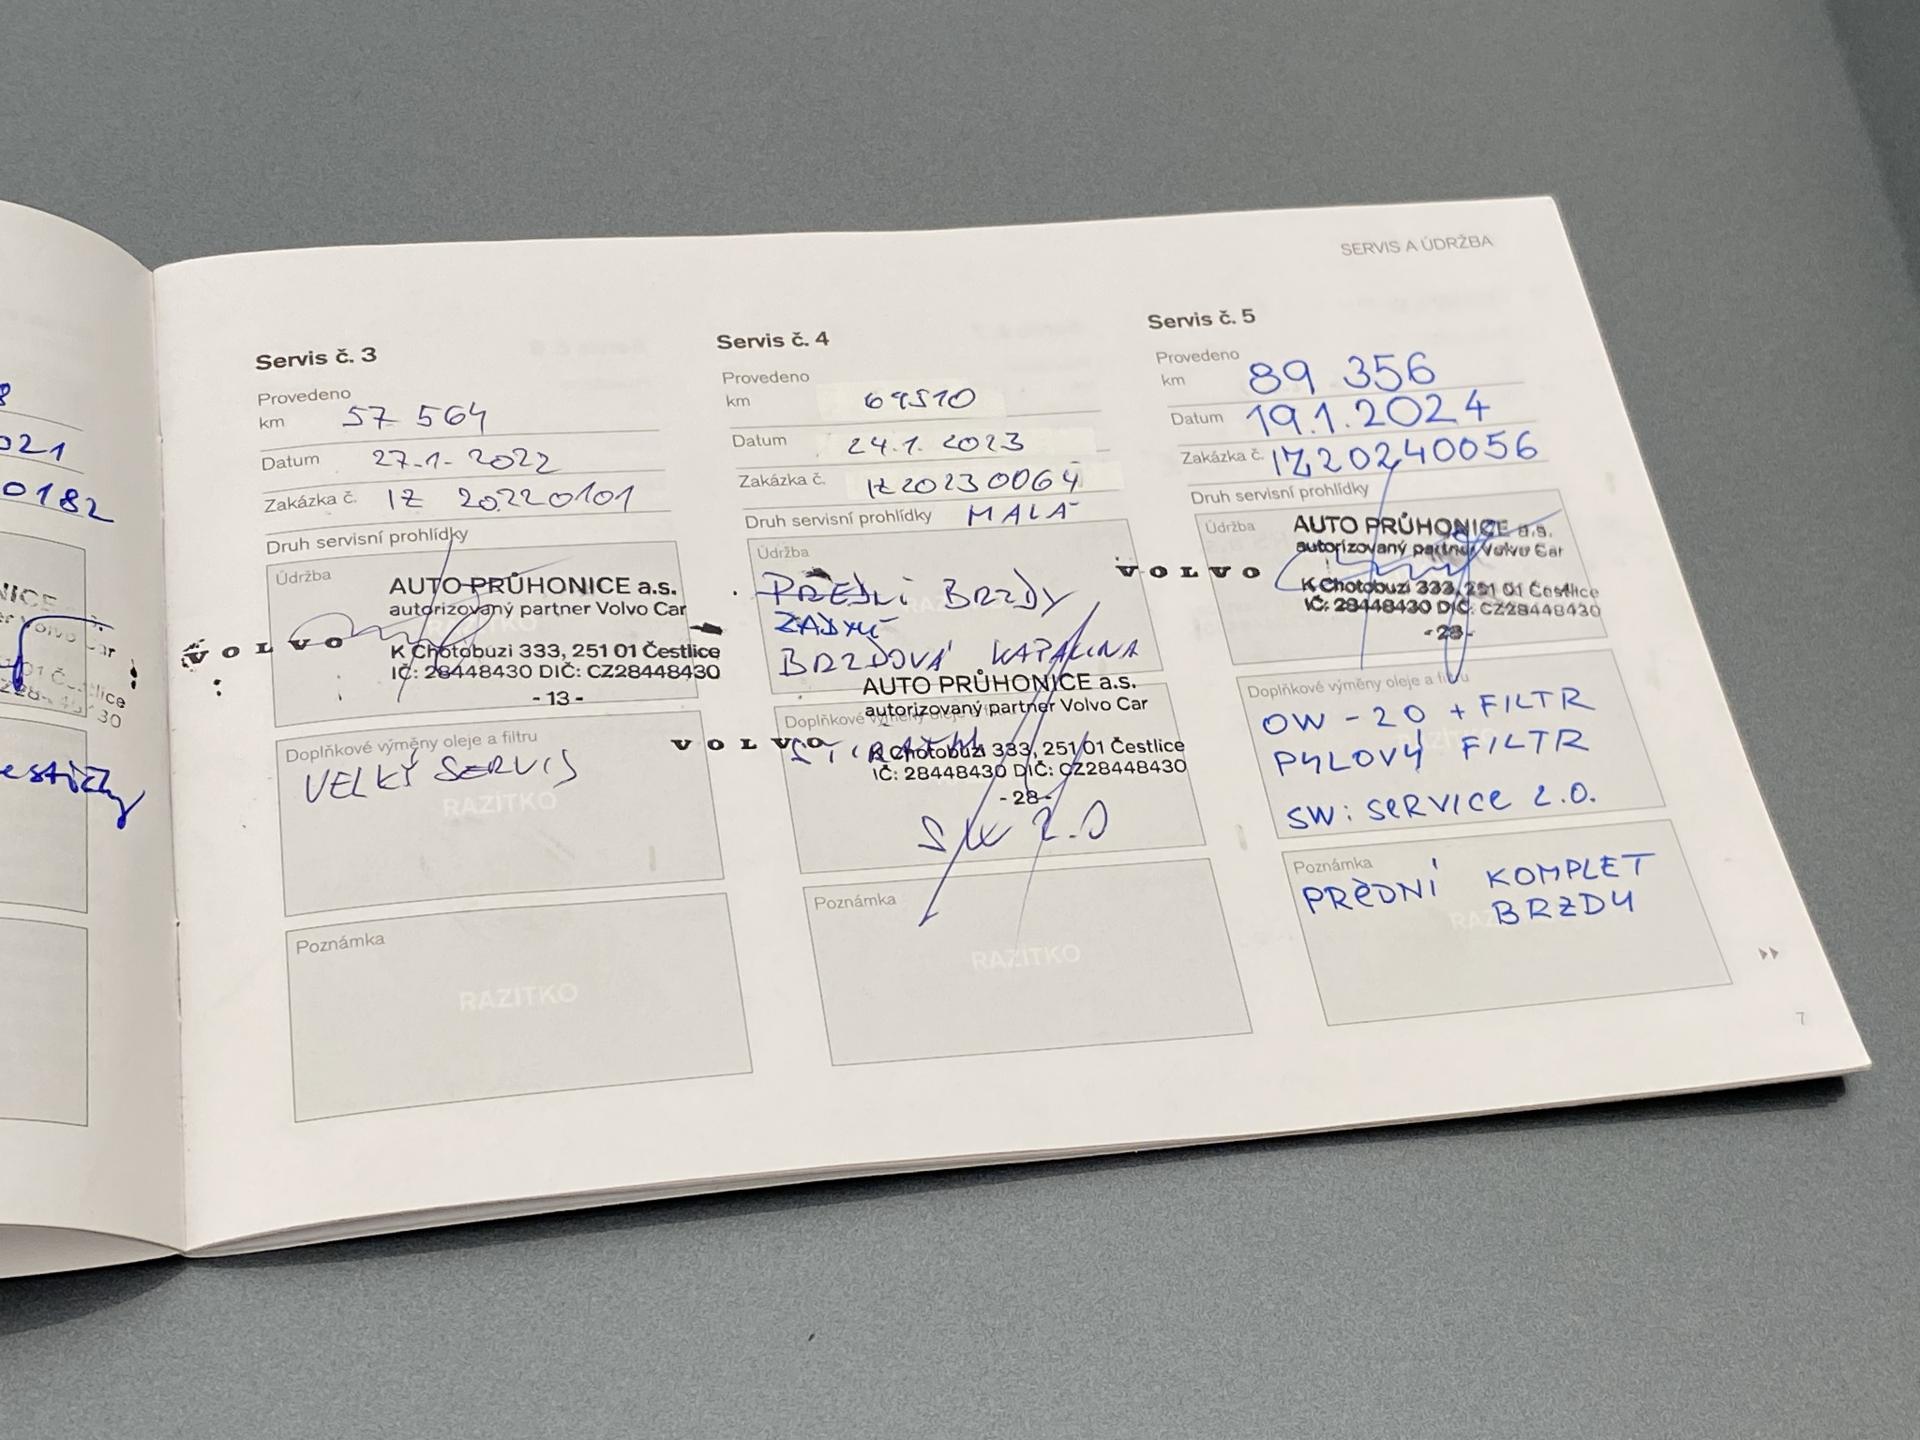 8
021
0182
NICE
01 Č
lice
30
SERVIS A ÚDRŽBA
Servis č. 3
Provedeno
km 57 564
Datum 27.1. 2022
Zakázka č. IZ 20220101
Druh servisní prohlídky
Údržba
AUTO PRŮHONICE a.s.
autorizovaný partner Volvo Car
VOLVO
K Chotobuzi 333, 251 01 Čestlice
IČ: 28448430 DIČ: CZ28448430
- 13 -
Doplňkové výměny oleje a filtru
VELKÝ SERVIS
RAZÍTKO
Poznámka
RAZÍTKO
Servis č. 4
Provedeno
km 69510
Datum 24.1. 2023
Zakázka č. IZ20230064
Druh servisní prohlídky MALÁ
Údržba
PŘEDNÍ BRZDY
ZADNÍ
BRZDOVÁ KAPALINA
AUTO PRŮHONICE a.s.
autorizovaný partner Volvo Car
Doplňkové výměny oleje a filtru
VOLVO
K Chotobuzi 333, 251 01 Čestlice
IČ: 28448430 DIČ: CZ28448430
- 28 -
SW 2.0
Poznámka
RAZÍTKO
Servis č. 5
Provedeno
km 89 356
Datum 19.1.2024
Zakázka č. IZ20240056
Druh servisní prohlídky
Údržba
AUTO PRŮHONICE a.s.
autorizovaný partner Volvo Car
VOLVO
K Chotobuzi 333, 251 01 Čestlice
IČ: 28448430 DIČ: CZ28448430
- 28 -
Doplňkové výměny oleje a filtru
OW - 20 + FILTR
PYLOVÝ FILTR
SW: SERVICE 2.0.
Poznámka
PŘEDNÍ KOMPLET
BRZDY
7